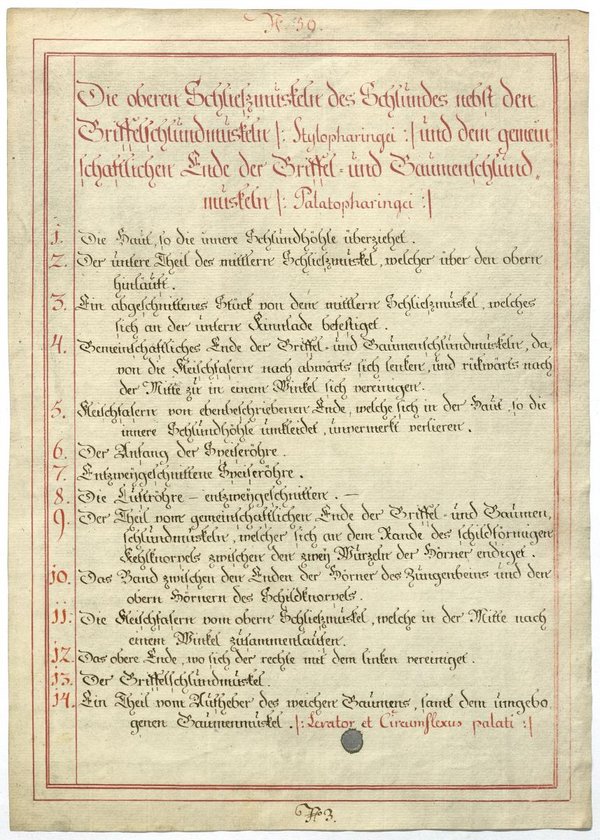 N. 59.
Die oberen Schließmuskeln des Schlundes nebst den
Griffelschlundmuskeln |: Stylopharingei :| und dem gemein
schaftlichen Ende der Griffel- und Gaumenschlund„
muskeln |: Palatopharingei :|
1. Die Haut, so die innere Schlundhöhle überziehet.
2. Der untere Theil des mittlern Schließmuskel, welcher über den obern
hinläuft.
3. Ein abgeschnittenes Stück von dem mittlern Schließmuskel, welches
sich an der untern Kinnlade befestiget.
4. Gemeinschaftliches Ende der Griffel- und Gaumenschlundmuskeln, da,
von die Fleischfasern nach abwärts sich lenken, und rükwärts nach
der Mitte zu in einem Winkel sich vereinigen.
5. Fleischfasern von ebenbeschriebenen Ende, welche sich in der Haut, so die
innere Schlundhöhle umkleidet, unvermerkt verlieren.
6. Der Anfang der Speiseröhre.
7. Entzweygeschnittene Speiseröhre.
8. Die Luftröhre – entzweygeschnitten. —
9. Der Theil vom gemeinschaftlichen Ende der Griffel- und Gaumen,
schlundmuskeln, welcher sich an dem Rande des schildförmigen
Kehlknorpels zwischen den zwey Wurzeln der Hörner endiget.
10. Das Band zwischen den Enden der Hörner des Zungenbeins und den
obern Hörnern des Schildknorpels.
11. Die Fleischfasern vom obern Schließmuskel, welche in der Mitte nach
einem Winkel zusammenlaufen.
12. Das obere Ende, wo sich der rechte mit dem linken vereiniget.
13. Der Griffelschlundmuskel.
14. Ein Theil vom Aufheber des weichen Gaumens, samt dem umgebo
genen Gaumenmuskel. |: Levator et Circumflexus palati :|
N 3.